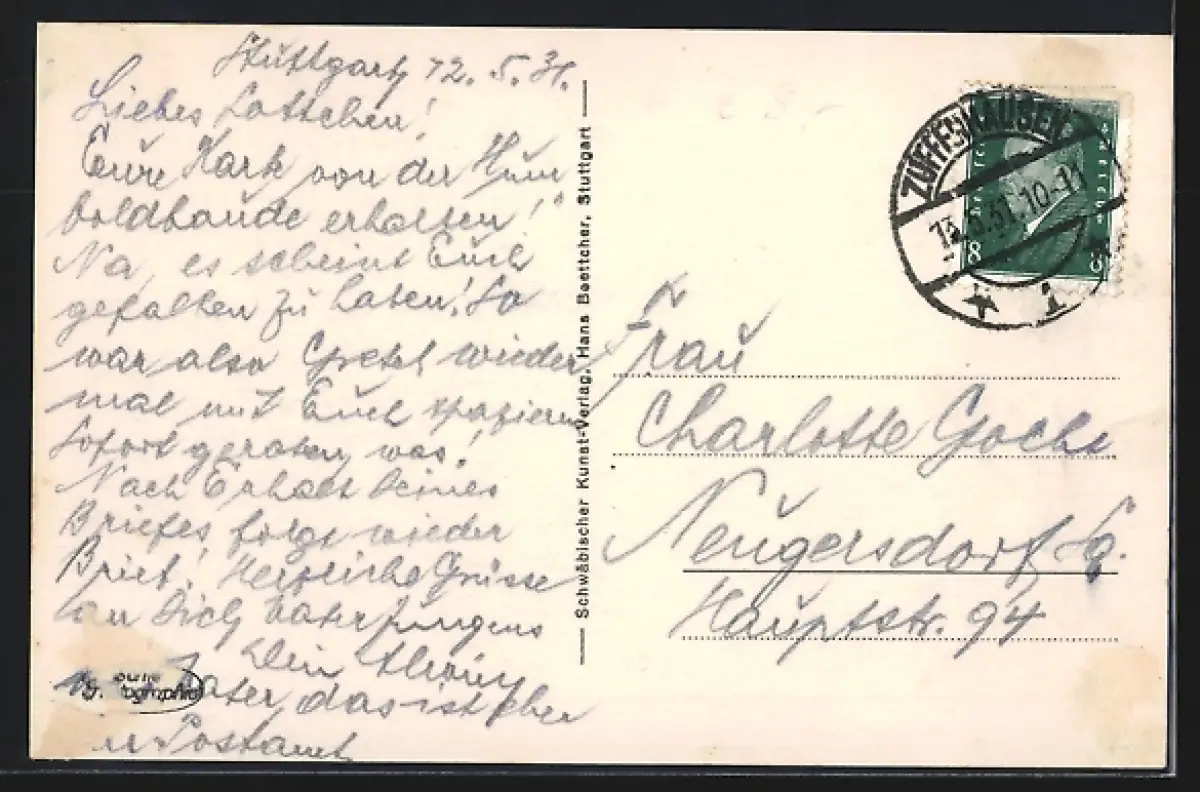 Stuttgart, 12. 5. 31.
Liebes Lottchen!
Eure Karte von der Hum
boldbaude erhalten!
Na, es scheint Euch
gefallen zu haben! So
war also Gretel wieder
mal mit Euch spazieren
Sofort geraten, was!
Nach Erhalt Deines
Briefes folgt wieder
Brief! Herzliche Grüsse
an Dich, Vater Jungens
Dein
Vater, das ist eben
Postamt
Schwäbischer Kunst-Verlag, Hans Boettcher, Stuttgart
ZUFFENHAUSEN
13.5.31.10-11
1
8
8
Frau
Charlotte Gocht
Neugersdorf Sa.
Hauptstr. 94